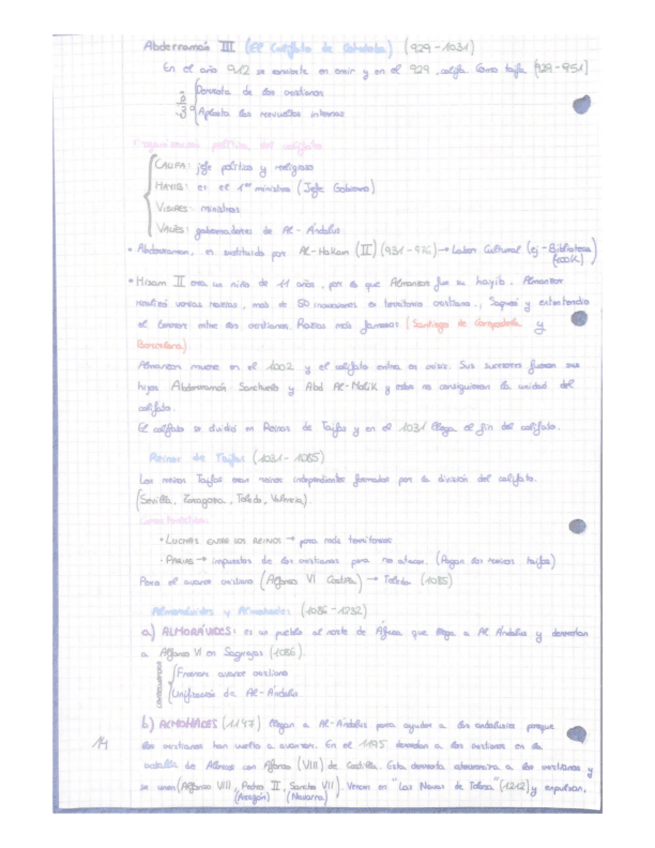 Abderramán III (El Califato de Córdoba) (929-1031)
En el año 912 se convierte en emir y en el 929, califa. Como taifa (929-951)
Derrota de los cristianos
Aplasta las revueltas internas
Organización política del califato
CALIFA: jefe político y religioso
HAYIB: es el 1er ministro (Jefe Gobierno)
VISIRES: ministros
VALÍES: gobernadores de Al-Ándalus
• Abderraman, es sustituido por Al-Hakam (II) (931-976) → Labor Cultural (ej-Biblioteca)
(400K)
• Hixam II era un niño de 11 años, por lo que Almanzor fue su hayib. Almanzor
realizó varias razias, más de 50 incursiones en territorio cristiano. Saqueó y extendiendo
el terror entre los cristianos. Razias más famosas (Santiago de Compostela y
Barcelona)
Almanzor muere en el 1002 y el califato entra en crisis. Sus sucesores fueron sus
hijos Abderramán Sanchuelo y Abd Al-Malik y estos no consiguieron la unidad del
califato.
El califato se dividió en Reinos de Taifas y en el 1031 llega el fin del califato.
Reinos de Taifas (1031-1085)
Los reinos Taifas eran reinos independientes formados por la división del califato.
(Sevilla, Zaragoza, Toledo, Valencia).
Características
• LUCHAS ENTRE LOS REINOS → para más territorios
• PARIAS → impuestos de los cristianos para no atacar. (Pagan los reinos taifas)
Para el avance cristiano (Alfonso VI Castilla) → Toledo (1085)
Almorávides y Almohades (1086-1232)
a) ALMORÁVIDES: es un pueblo al norte de África que llega a Al Ándalus y derrotan
a Alfonso VI en Sagrajas (1086).
CONSECUENCIAS
Frenan avance cristiano
Unificación de Al-Ándalus
b) ALMOHADES (1147) llegan a Al-Ándalus para ayudar a los andalusíes porque
los cristianos han vuelto a avanzar. En el 1195 derrotan a los cristianos en la
batalla de Alarcos con Alfonso (VIII) de Castilla. Esta derrota atemoriza a los cristianos y
se unen (Alfonso VIII, Pedro II, Sancho VII). Vencen en "Las Navas de Tolosa" (1212) y expulsan.
(Aragón) (Navarra)
14